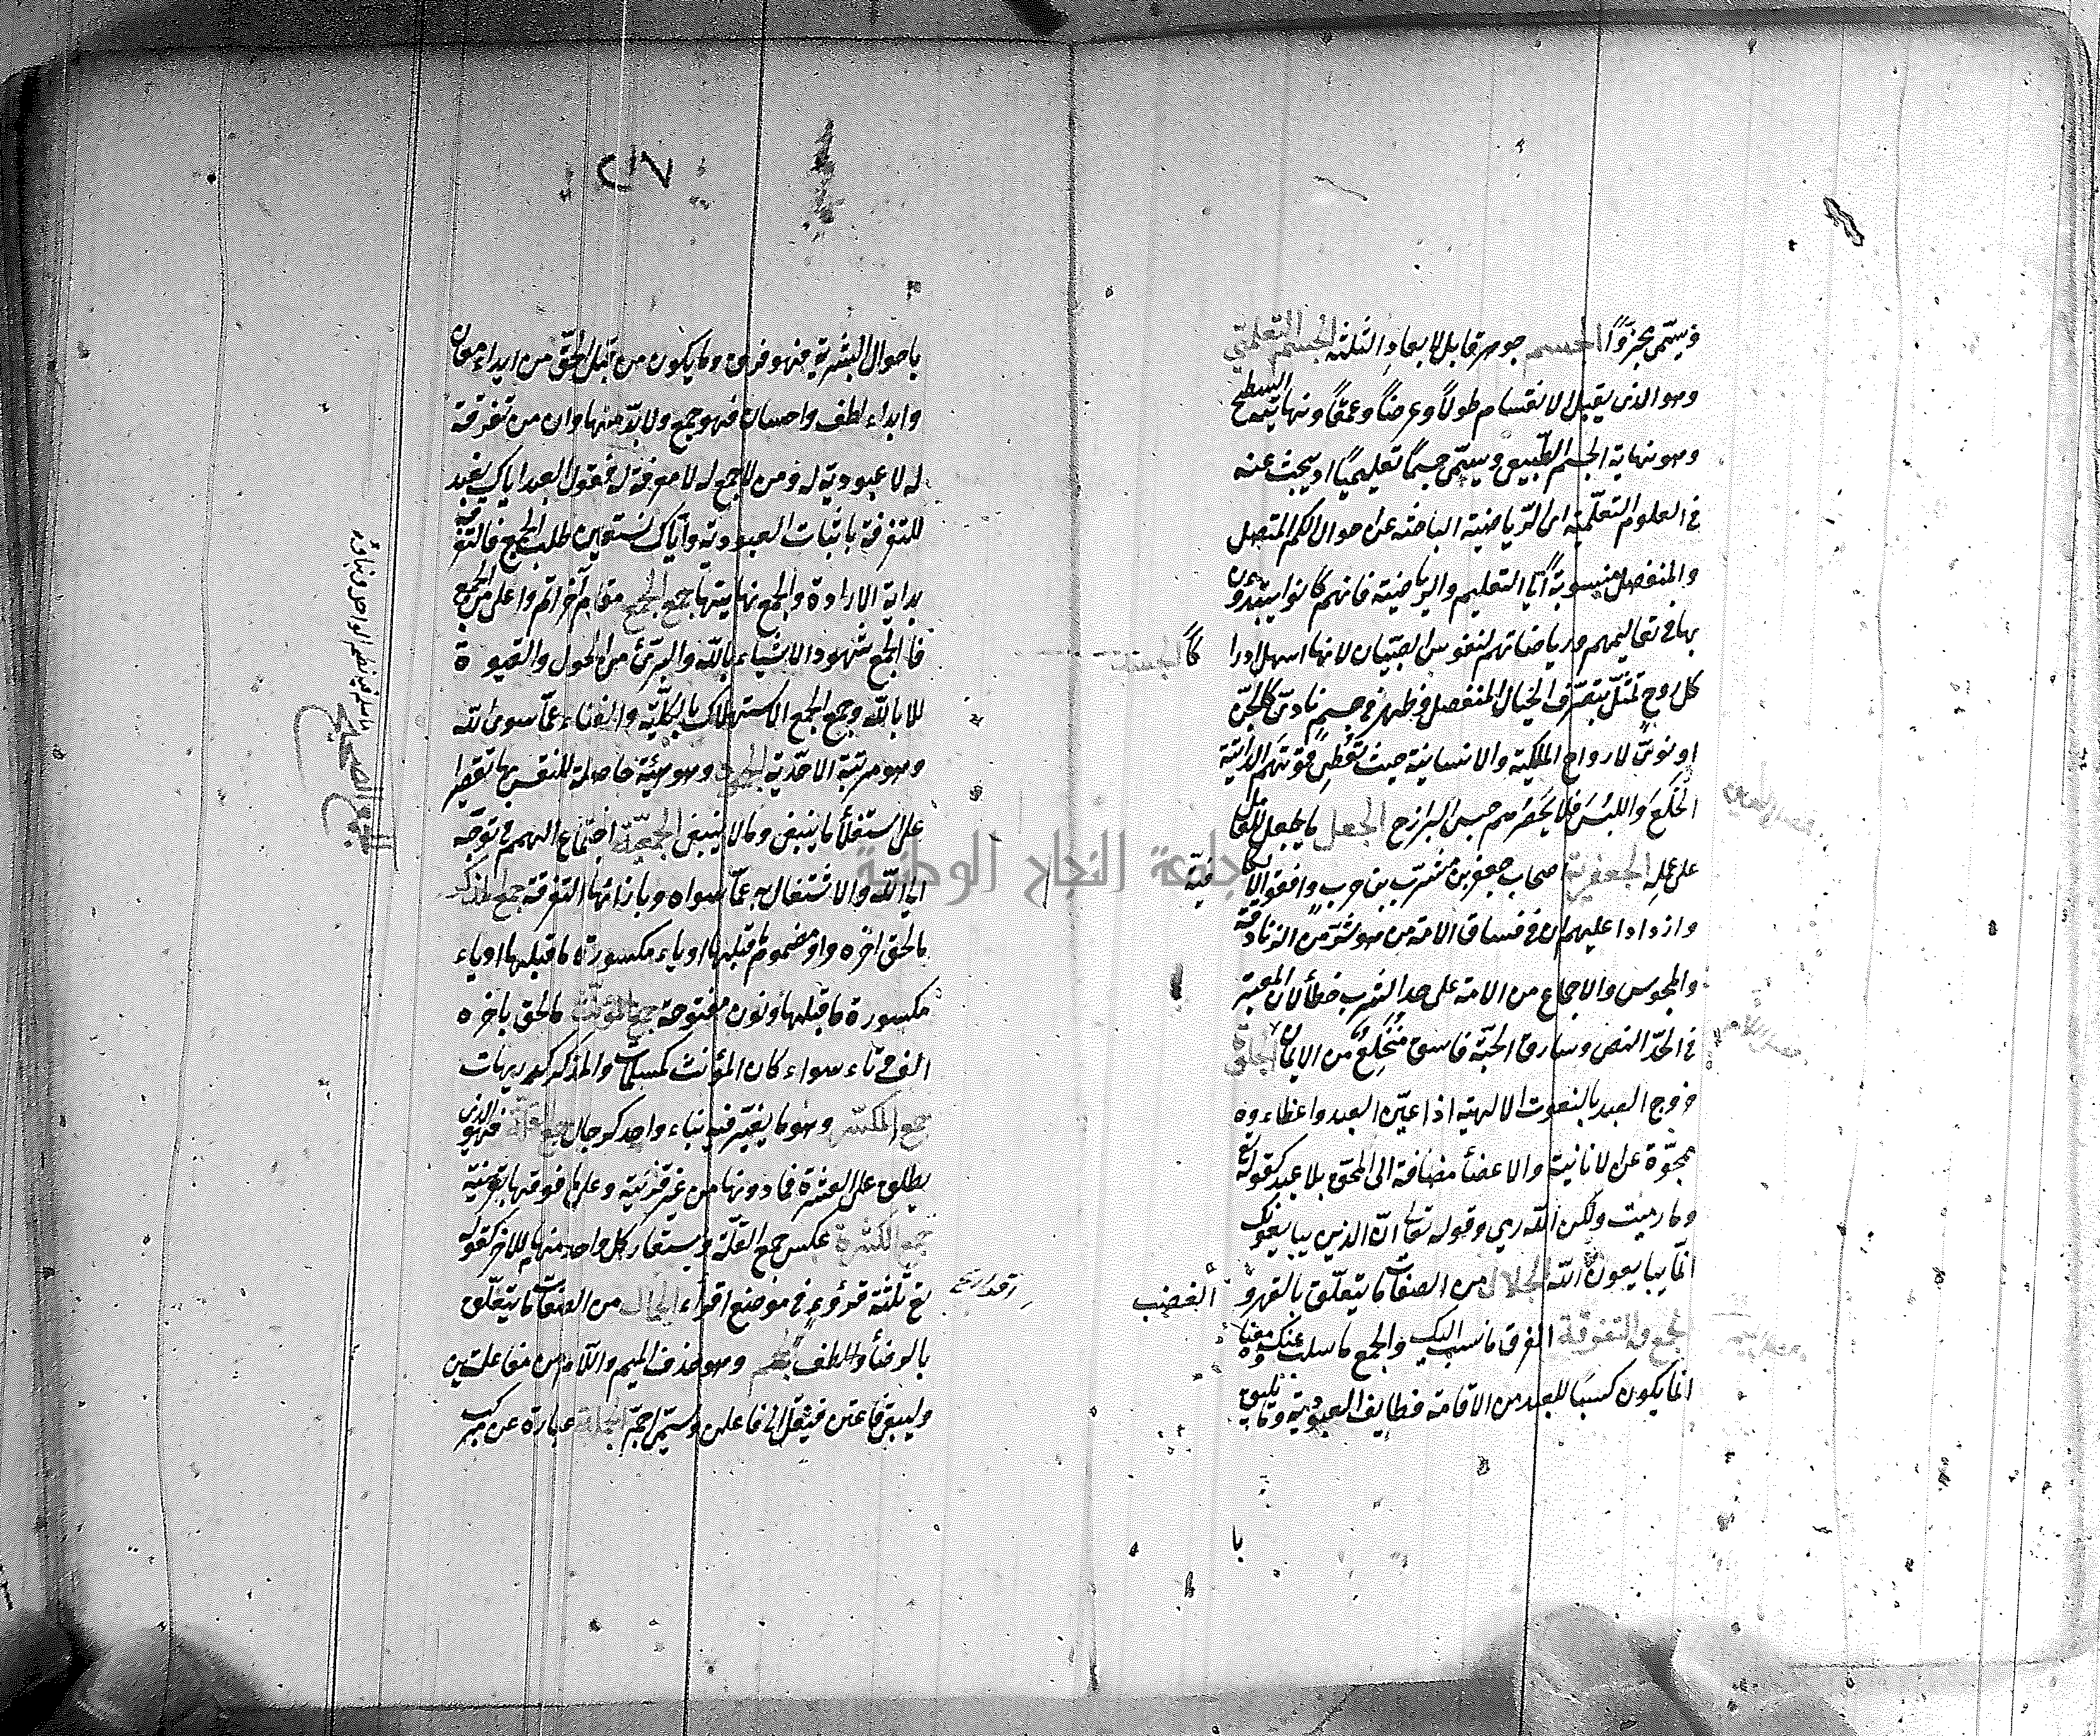 فيسمى مجزوًّا الجسم جوهر قابل لابعاد الثلثة الجسم التعليمي
وهو الذي يقبل الانقسام طولًا وعرضًا وعمقًا ونهايته السطح
وهو نهاية الجسم الطبيعي ويسمى جسمًا تعليميًا اذ يبحث عنه
في العلوم التعليمية اي الرياضية الباحثة عن احوال الكم المتصل
والمنفصل منسوبة الى التعليم والرياضية فانهم كانوا يبتدون
بها في تعاليمهم ورياضاتهم لنفوس الصبيان لانها اسهل ادراكًا الجسد
كل روح تمثل بتصرف الخيال المنفصل وظهر في جسم نارى كالجن
او نورى كالارواح الملكية والانسانية حيث تعطى قوتهم الذاتية
الخلع واللبس فلا يحصرهم حبس البرازخ الجعل ما يجعل للعامل
على عمله الجعفرية اصحاب جعفر بن مبشر بن حرب وافقوا الاسكافية
وازدادا عليهم ان في فساق الامة من هو شر من الزنادقة
والمجوس والاجماع من الامة على حد الشرب خطأ لان المعتبر
في الحد النص وسارق الحبة فاسق منخلع من الايمان الجلوة
خروج العبد بالنعوت الالهية اذا عين العبد واعضاءوه
ممحوة عن الانانية والاعضأ مضافة الى الحق بلا عبد كقوله تع
وما رميت ولكن الله رمى وقوله تعالى ان الذين يبايعونك
انما يبايعون الله الجلال من الصفات ما يتعلق بالقهر و الغضب
الجمع والتفرقة الفرق ما نسب اليك والجمع ما سلب عنك ومعناه
انما يكون كسبًا للعبد من الاقامة فطايف العبودية وما يليق
با
٢١٧
باحوال البشرية فهو فرق وما يكون من قبل الحق من ابداء معان
وابداء لطف واحسان فهو جمع ولا بد منهما وان من تفرقة
له لا عبودية له ومن لا جمع له لا معرفة له فقول العبد اياك نعبد
للتفرقة باثبات العبودية واياك نستعين طلب الجمع فالتفرقة
بداية الارادة والجمع نهايتها جمع الجمع مقام آخر اتم واعلى من الجمع
فالجمع شهود الاشياء بالله والتبرئ من الحول والقوة
الا بالله وجمع الجمع الاستهلاك بالكلية والفناء عما سوى الله
وهو مرتبة الاحدية الجمود وهو هيئة حاصلة للنفس بها تقتصر
على استيفأ ما ينبغي وما لا ينبغي الجمعية اجتماع الهمم في توجه
الى الله والاشتغال به عما سواه وبازائها التفرقة جمع المذكر
ما لحق اخره واو مضموم ما قبلها او ياء مكسورة ما قبلها او ياء
مكسورة ما قبلها ونون مفتوحة جمع المؤنث ما لحق باخره
الف وتاء سواء كان المؤنث كمسلمات والمذكر كدريهات
جمع المكسر وهو ما يغير فيه بناء واحد كرجال جمع القلة فهو الذي
يطلق على العشرة فما دونها من غير قرينة وعلى ما فوقها بقرينة
جمع الكثرة عكس جمع القلة ويستعار كل واحد منها للاخر كقوله
تع ثلثة قروء في موضع اقراء الجمال من الصفات ما يتعلق
بالرضأ واللطف الجمم وهو حذف الميم واللام من مفاعلتن
وليبقى فاعتن فينقل الى فاعلن ويسمى اجم الجملة عبارة عن مركب
الجمع الصحيح
ما سلم فيه نظم الواحد وبناؤه